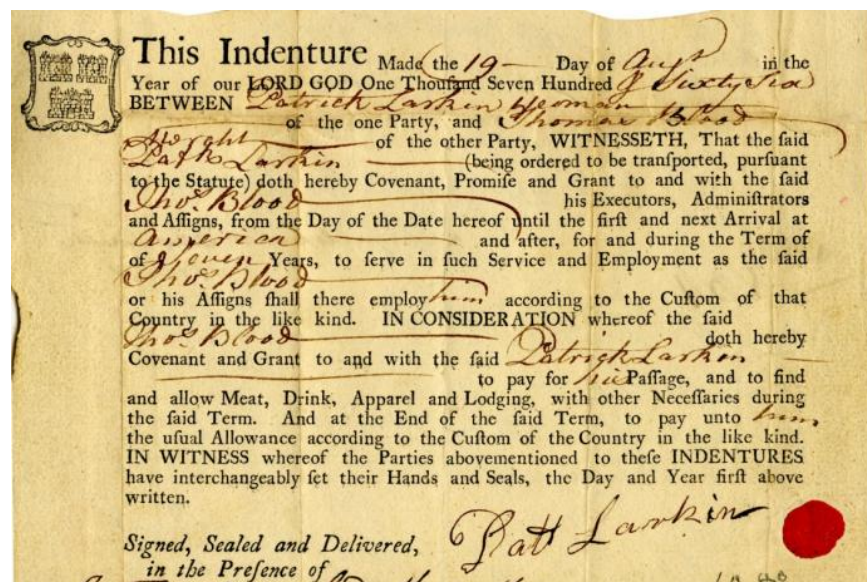 This Indenture Made the 19 — Day of Augt in the
Year of our LORD GOD One Thouſand Seven Hundred & Sixty Six
BETWEEN Patrick Larkin Yeoman
of the one Party, and Thomas Blood
of the other Party, WITNESSETH, That the ſaid
Patk Larkin (being ordered to be tranſported, purſuant
to the Statute) doth hereby Covenant, Promiſe and Grant to and with the ſaid
Thos Blood his Executors, Adminiſtrators
and Aſſigns, from the Day of the Date hereof until the firſt and next Arrival at
America and after, for and during the Term of
of Seven Years, to ſerve in ſuch Service and Employment as the ſaid
Thos Blood
or his Aſſigns ſhall there employ him according to the Cuſtom of that
Country in the like kind. IN CONSIDERATION whereof the ſaid
Thos Blood doth hereby
Covenant and Grant to and with the ſaid Patrick Larkin —
to pay for his Paſſage, and to find
and allow Meat, Drink, Apparel and Lodging, with other Neceſſaries during
the ſaid Term. And at the End of the ſaid Term, to pay unto him
the uſual Allowance according to the Cuſtom of the Country in the like kind.
IN WITNESS whereof the Parties abovementioned to theſe INDENTURES
have interchangeably ſet their Hands and Seals, the Day and Year firſt above
written.
Patt Larkin
Signed, Sealed and Delivered,
in the Preſence of